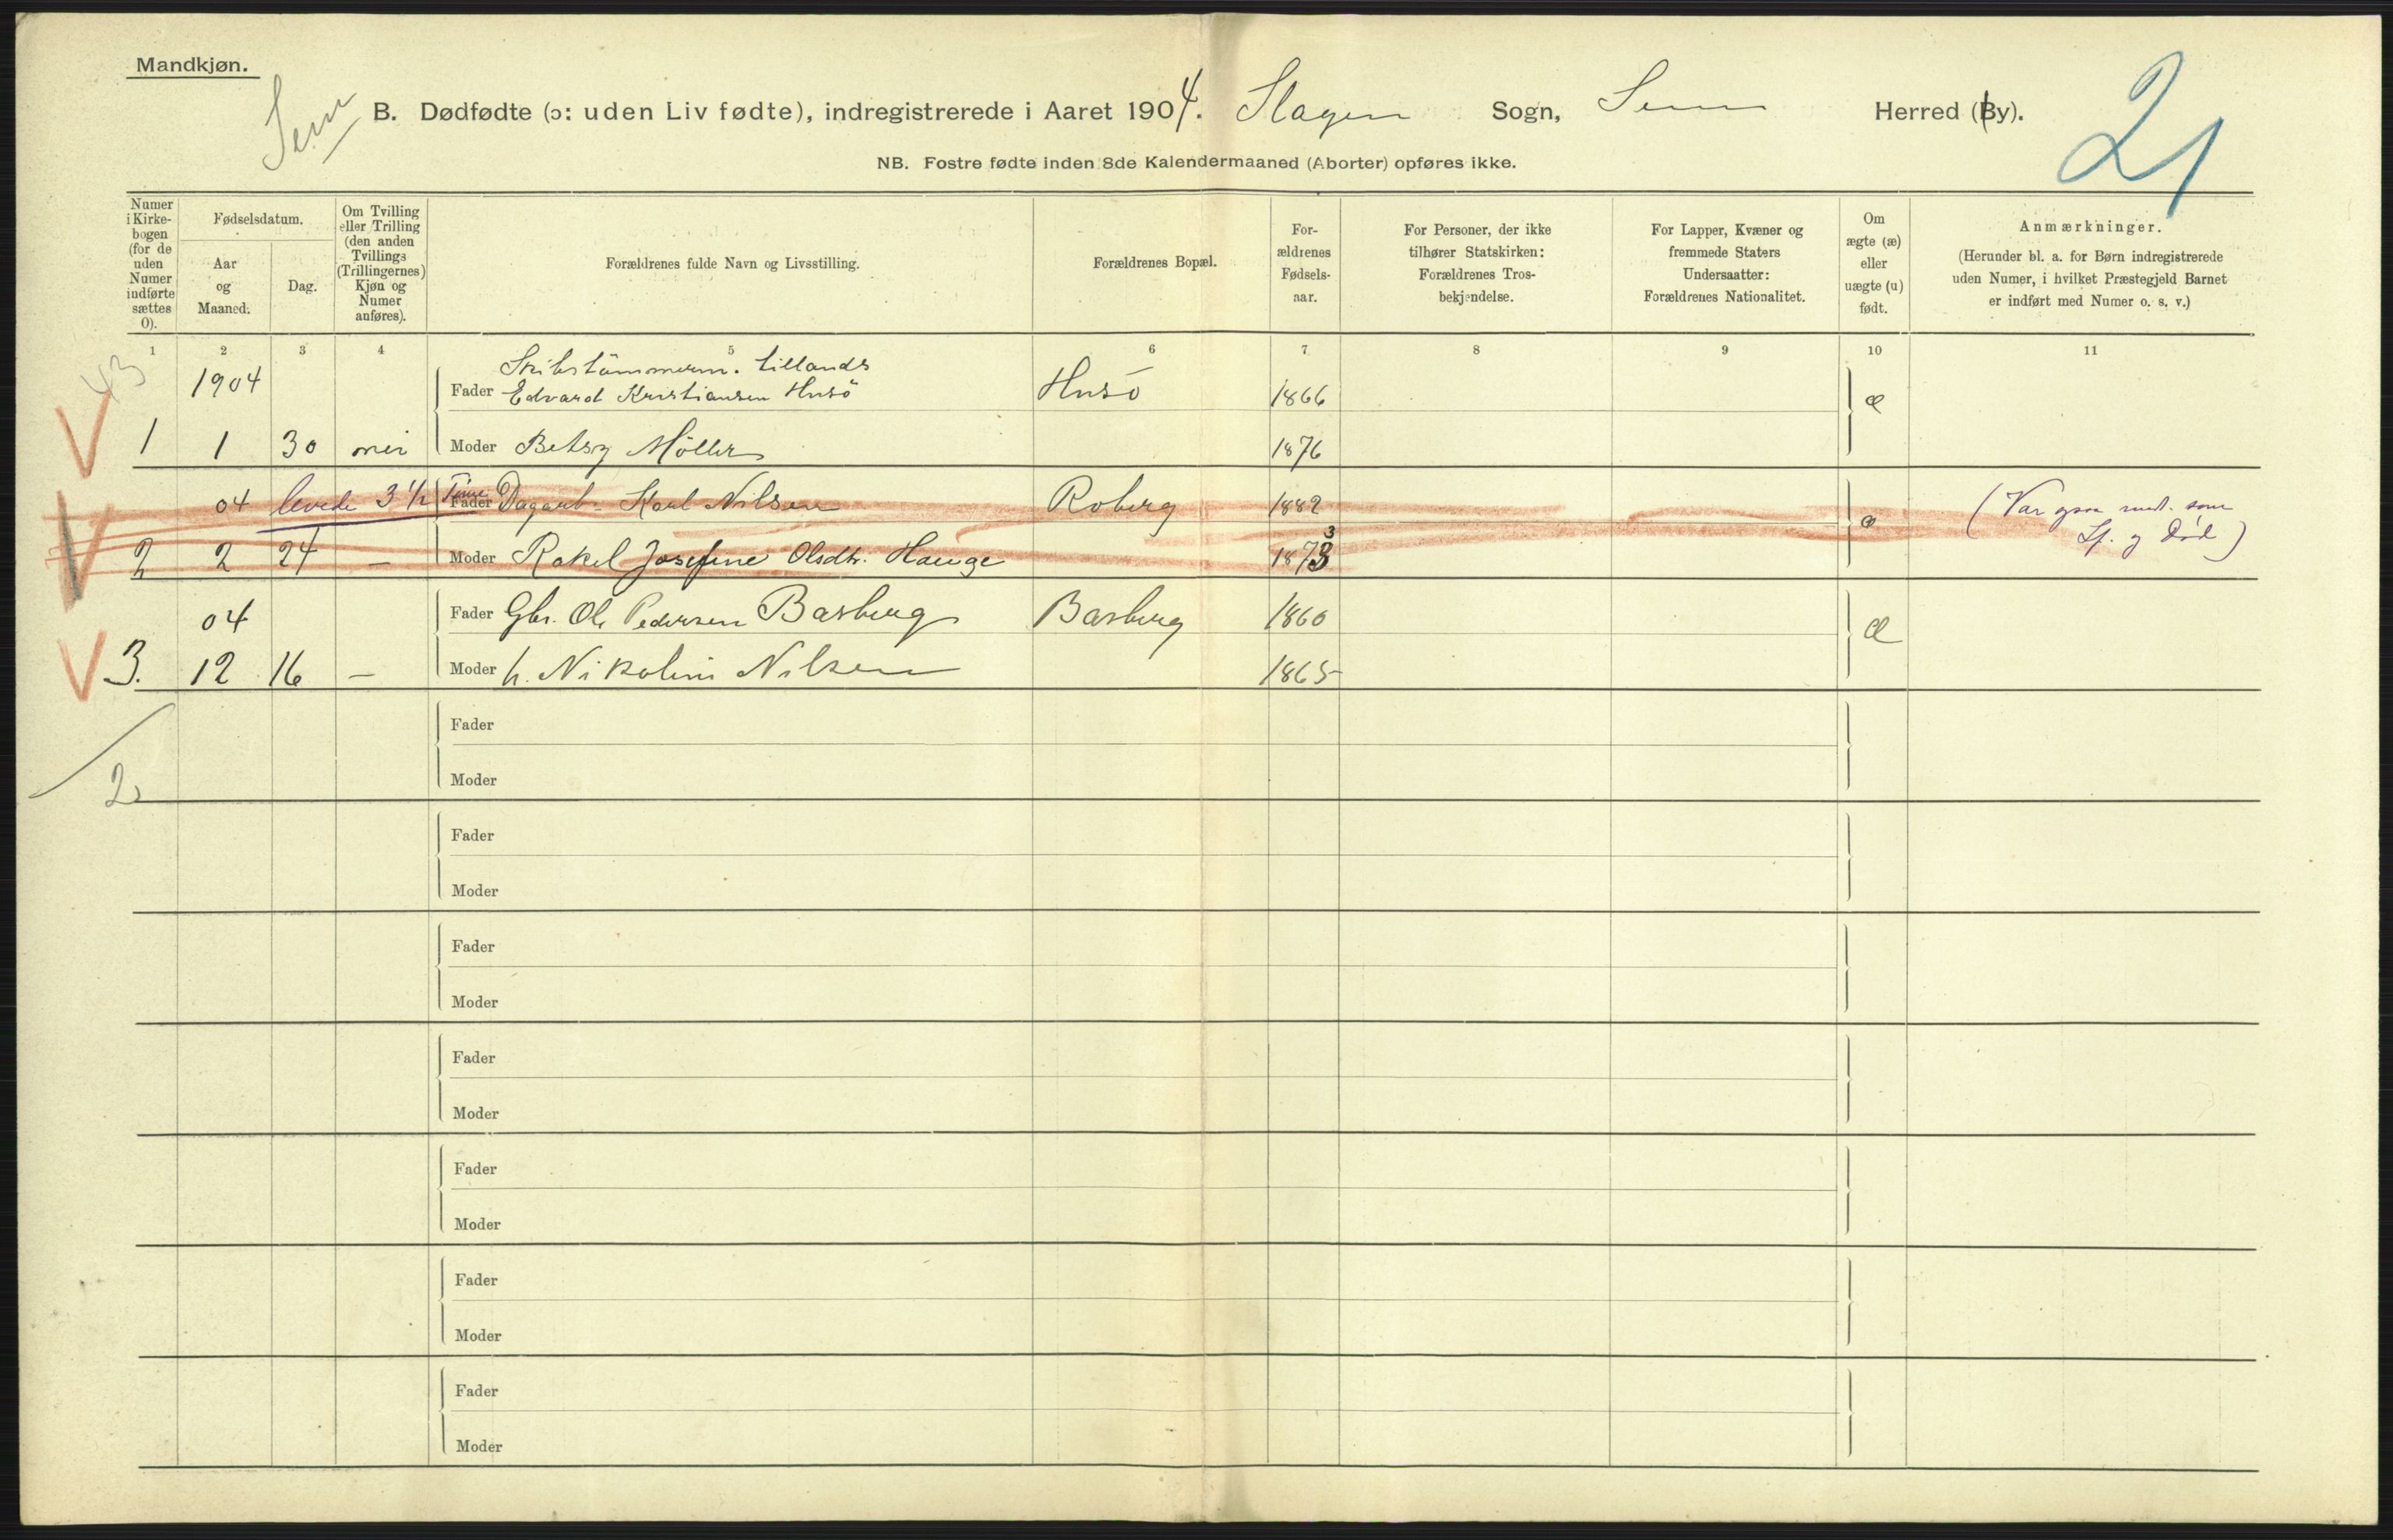 Mandkjøn.
Sem
B. Dødfødte (ɔ: uden Liv fødte), indregistrerede i Aaret 1904. Slagen Sogn, Sem Herred (By).
21
NB. Fostre fødte inden 8de Kalendermaaned (Aborter) opføres ikke.
Numer i Kirke-bogen (for de uden Numer indførte sættes 0).
Fødselsdatum.
Aar og Maaned.
Dag.
Om Tvilling eller Trilling (den anden Tvillings (Trillingernes) Kjøn og Numer anføres).
Forældrenes fulde Navn og Livsstilling.
Forældrenes Bopæl.
For-ældrenes Fødsels-aar.
For Personer, der ikke tilhører Statskirken: Forældrenes Tros-bekjendelse.
For Lapper, Kvæner og fremmede Staters Undersaatter: Forældrenes Nationalitet.
Om ægte (æ) eller uægte (u) født.
Anmærkninger.
(Herunder bl. a. for Børn indregistrerede uden Numer, i hvilket Præstegjeld Barnet er indført med Numer o. s. v.)
1 2 3 4 5 6 7 8 9 10 11
43
Skibstömmerm. tillands
1904 Fader Edvard Kristiansen Husö Husö 1866 æ
1 1 30 nei Moder Betsy Möller 1876
04 levede 3 1/2 Time Fader Dagarb. Karl Nilsen Roberg 1882 æ (Var ogsaa som
2 2 24 — Moder Rakel Josefine Olsdtr. Hauge 1873 3 Lf. og Død)
04 Fader Gbr. Ole Pedersen Basberg Basberg 1860 æ
3. 12 16 — Moder h. Nikoline Nilsen 1865
Fader
2
Moder
Fader
Moder
Fader
Moder
Fader
Moder
Fader
Moder
Fader
Moder
Fader
Moder